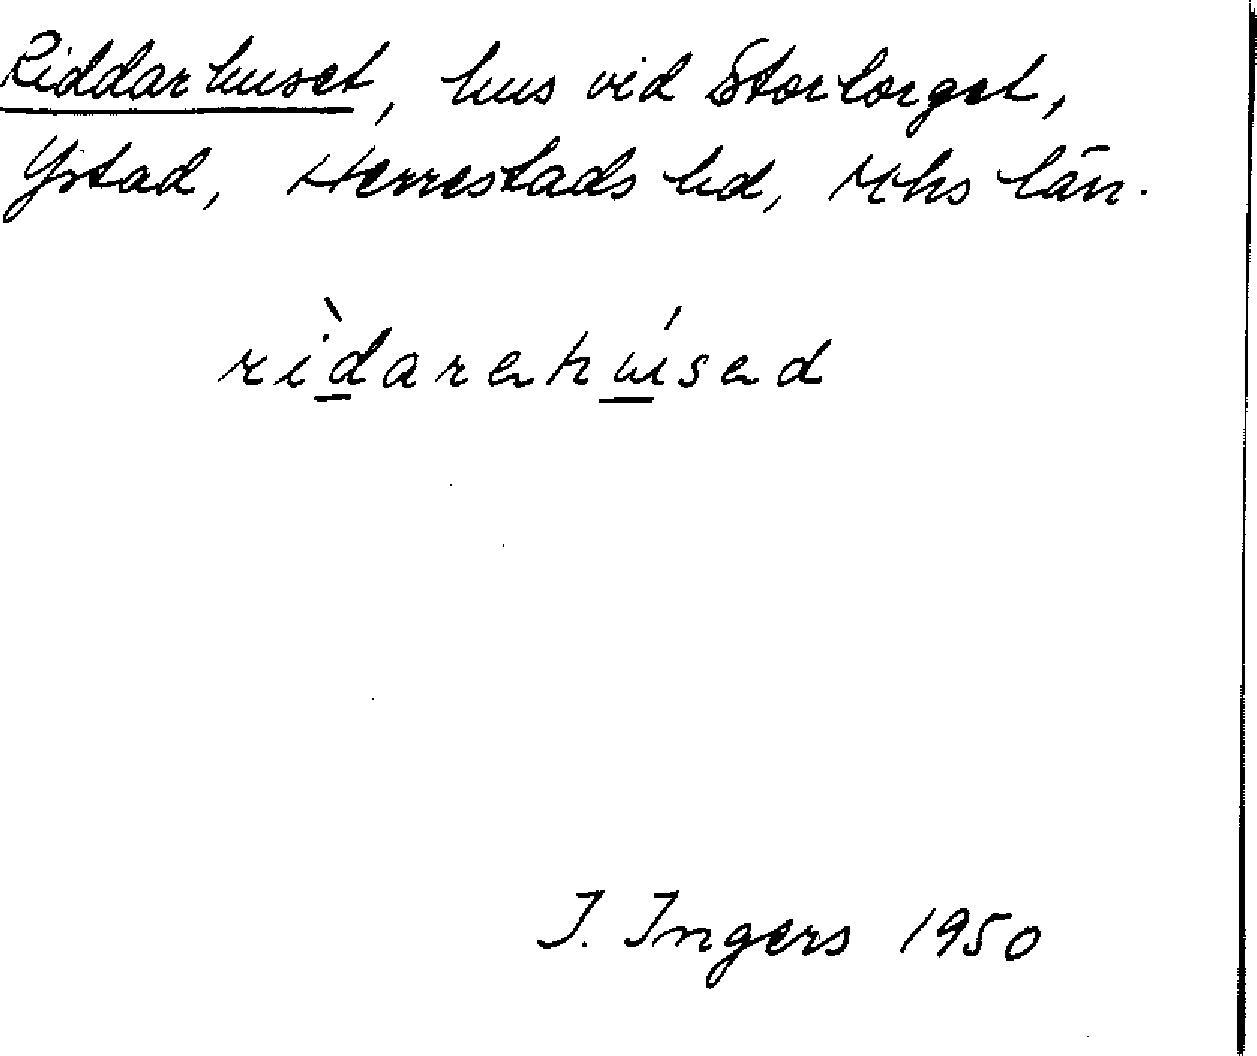 Riddarhuset, hus vid Stortorget,
Ystad, Herrestads hd, Mhs län.
rìdarehúsed
I. Ingers 1950